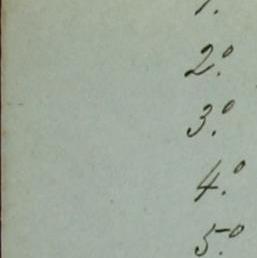 1.
2.º
3.º
4.º
5.º